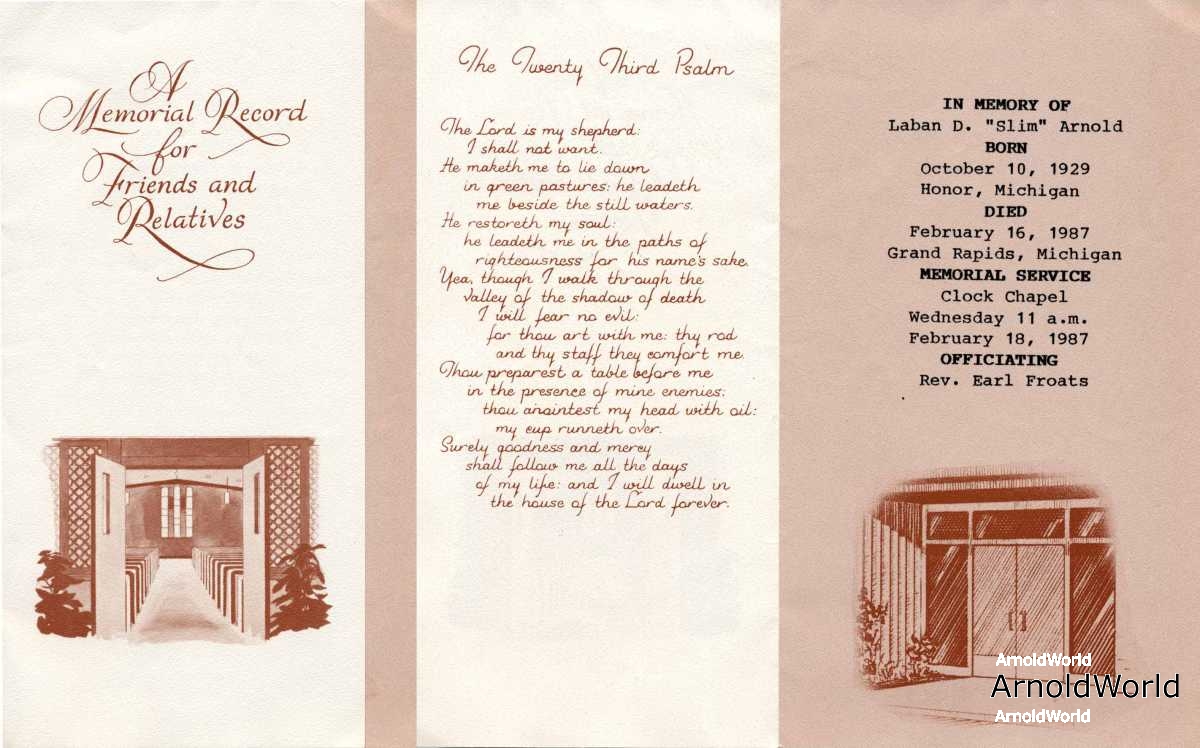 A
Memorial Record
for
Friends and
Relatives
The Twenty Third Psalm
The Lord is my shepherd:
I shall not want.
He maketh me to lie down
in green pastures: he leadeth
me beside the still waters.
He restoreth my soul:
he leadeth me in the paths of
righteousness for his name's sake.
Yea, though I walk through the
valley of the shadow of death
I will fear no evil:
for thou art with me: thy rod
and thy staff they comfort me.
Thou preparest a table before me
in the presence of mine enemies:
thou anointest my head with oil:
my cup runneth over.
Surely goodness and mercy
shall follow me all the days
of my life: and I will dwell in
the house of the Lord forever.
IN MEMORY OF
Laban D. "Slim" Arnold
BORN
October 10, 1929
Honor, Michigan
DIED
February 16, 1987
Grand Rapids, Michigan
MEMORIAL SERVICE
Clock Chapel
Wednesday 11 a.m.
February 18, 1987
OFFICIATING
Rev. Earl Froats
ArnoldWorld
ArnoldWorld
ArnoldWorld